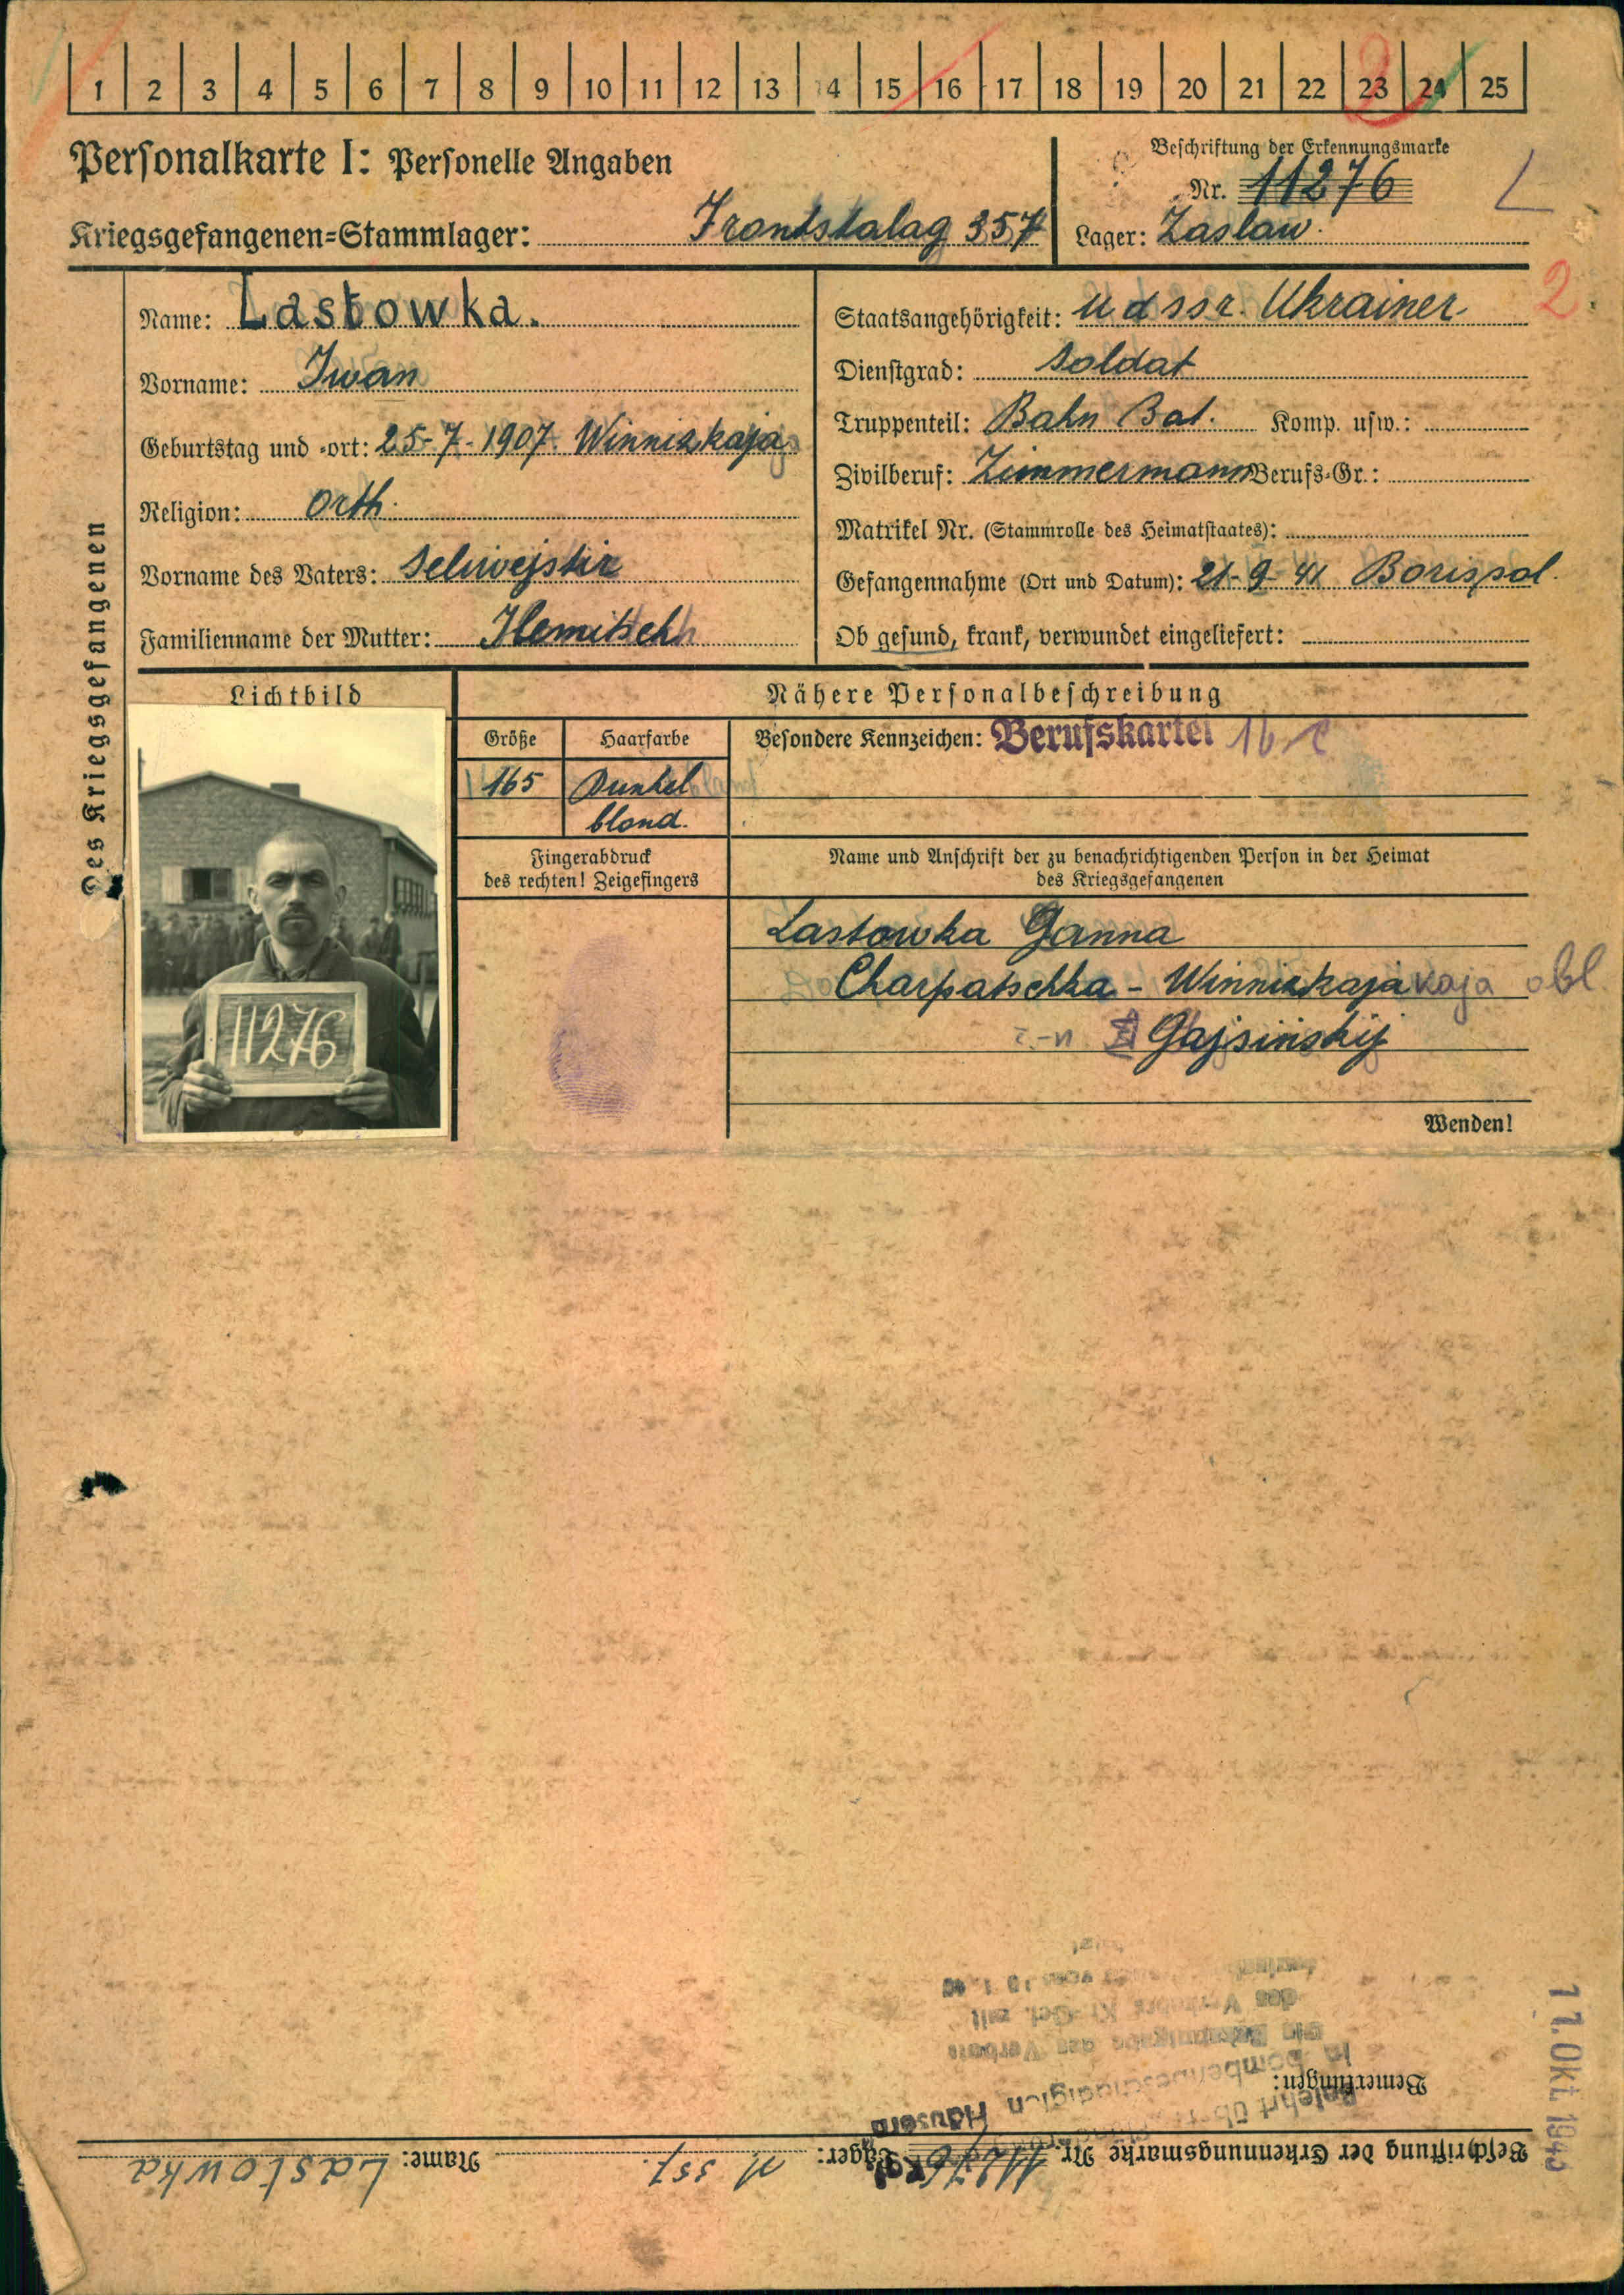 1 2 3 4 5 6 7 8 9 10 11 12 13 14 15 16 17 18 19 20 21 22 23 24 25
Personalkarte I: Personelle Angaben
Kriegsgefangenen=Stammlager: Frontstalag 357
Beschriftung der Erkennungsmarke
Nr. 11276
Lager: Zaslaw.
2
Des Kriegsgefangenen
Name: Lastowka.
Vorname: Iwan
Geburtstag und -ort: 25-7-1907. Winnizkaja
Religion: Orth.
Vorname des Vaters: Seliwejstir
Familienname der Mutter:
Staatsangehörigkeit: U d S S R. Ukrainer
Dienstgrad: Soldat
Truppenteil: Bahn Bat. Komp. usw.:
Zivilberuf: Zimmermann Berufs-Gr.:
Matrikel Nr. (Stammrolle des Heimatstaates):
Gefangennahme (Ort und Datum): 21-9-41 Borispol.
Ob gesund, krank, verwundet eingeliefert:
Lichtbild
11276
Nähere Personalbeschreibung
Größe
165
Haarfarbe
Dunkel
blond.
Besondere Kennzeichen: Berufskartei
Fingerabdruck
des rechten! Zeigefingers
Name und Anschrift der zu benachrichtigenden Person in der Heimat
des Kriegsgefangenen
Lastowka Ganna
Charpatschka - Winnizkaja kaja obl.
Gajsinskij
Wenden!
11. Okt. 1943
Beschriftung der Erkennungsmarke Nr. 11276 Lager: M 357. Name: Lastowka
Bemerkungen:
Belehrt über
in bombenbeschädigten Häusern
die Bekanntgabe des Verbots
des Verkehrs Kr.-Gef. mit